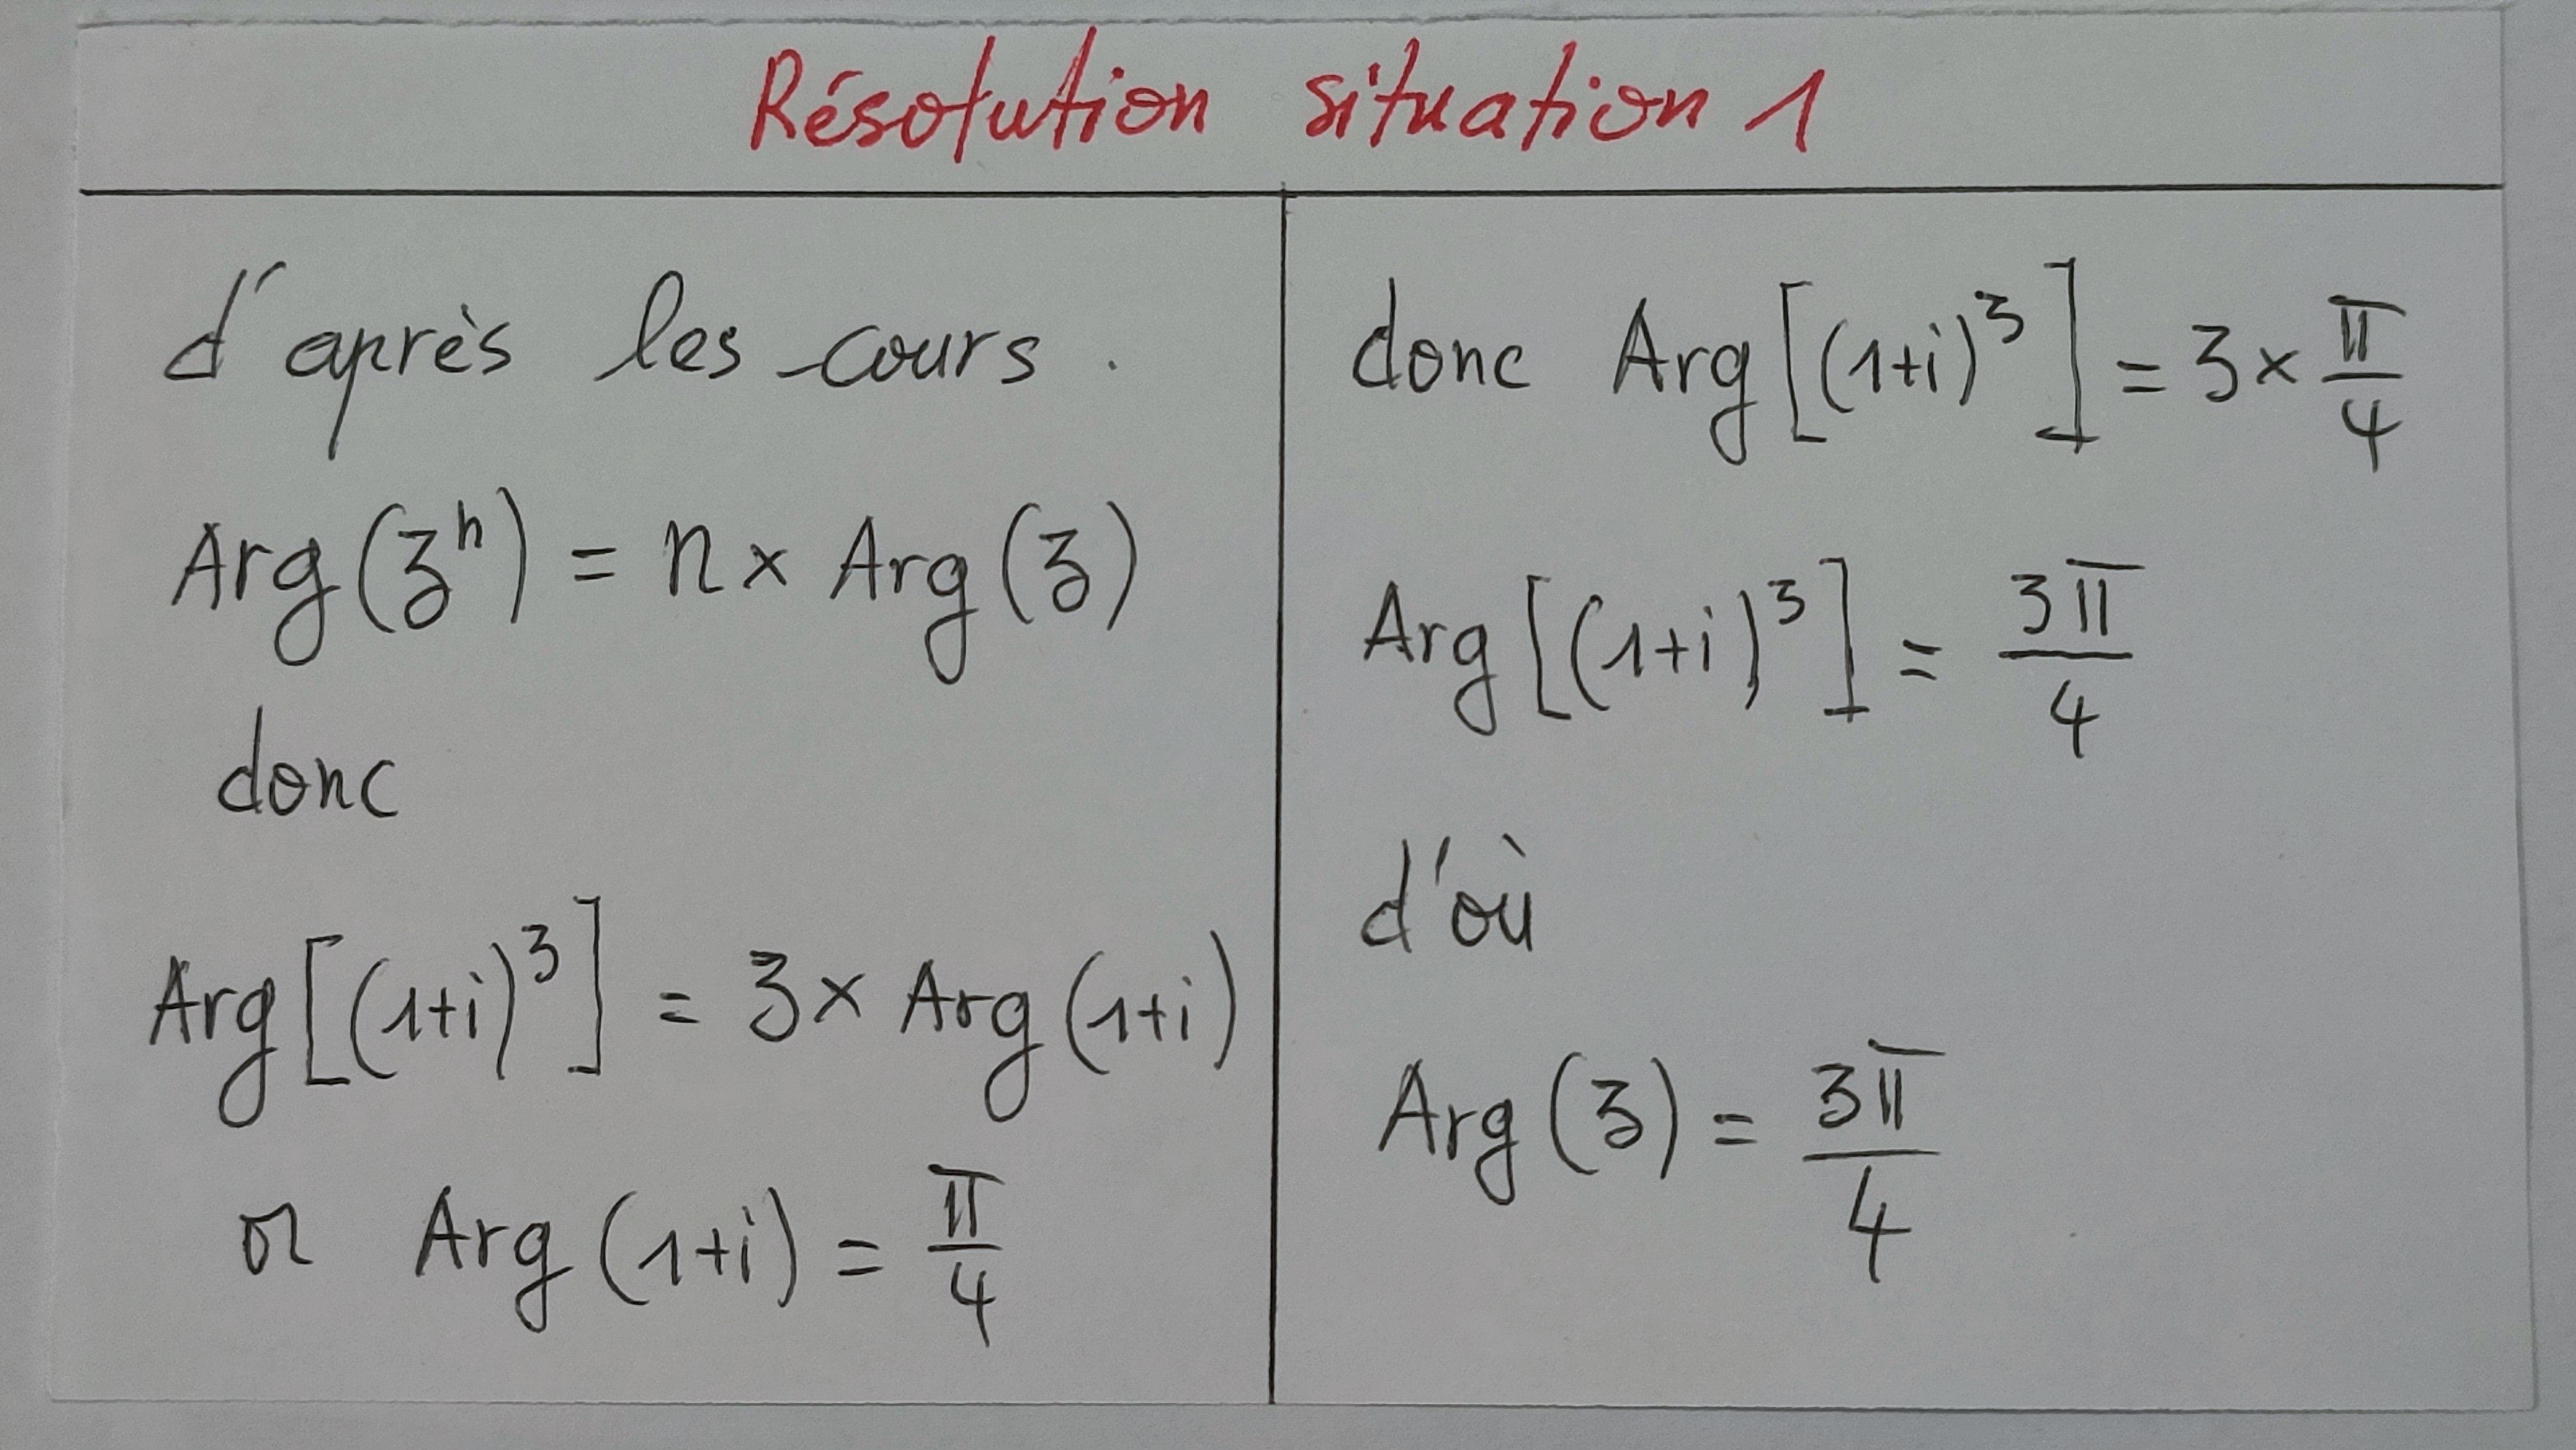 Résolution situation 1
d'après les cours.
Arg(z^n) = n × Arg(z)
donc
Arg[(1+i)^3] = 3 × Arg(1+i)
or Arg(1+i) = π/4
donc Arg[(1+i)^3] = 3 × π/4
Arg[(1+i)^3] = 3π/4
d'où
Arg(z) = 3π/4